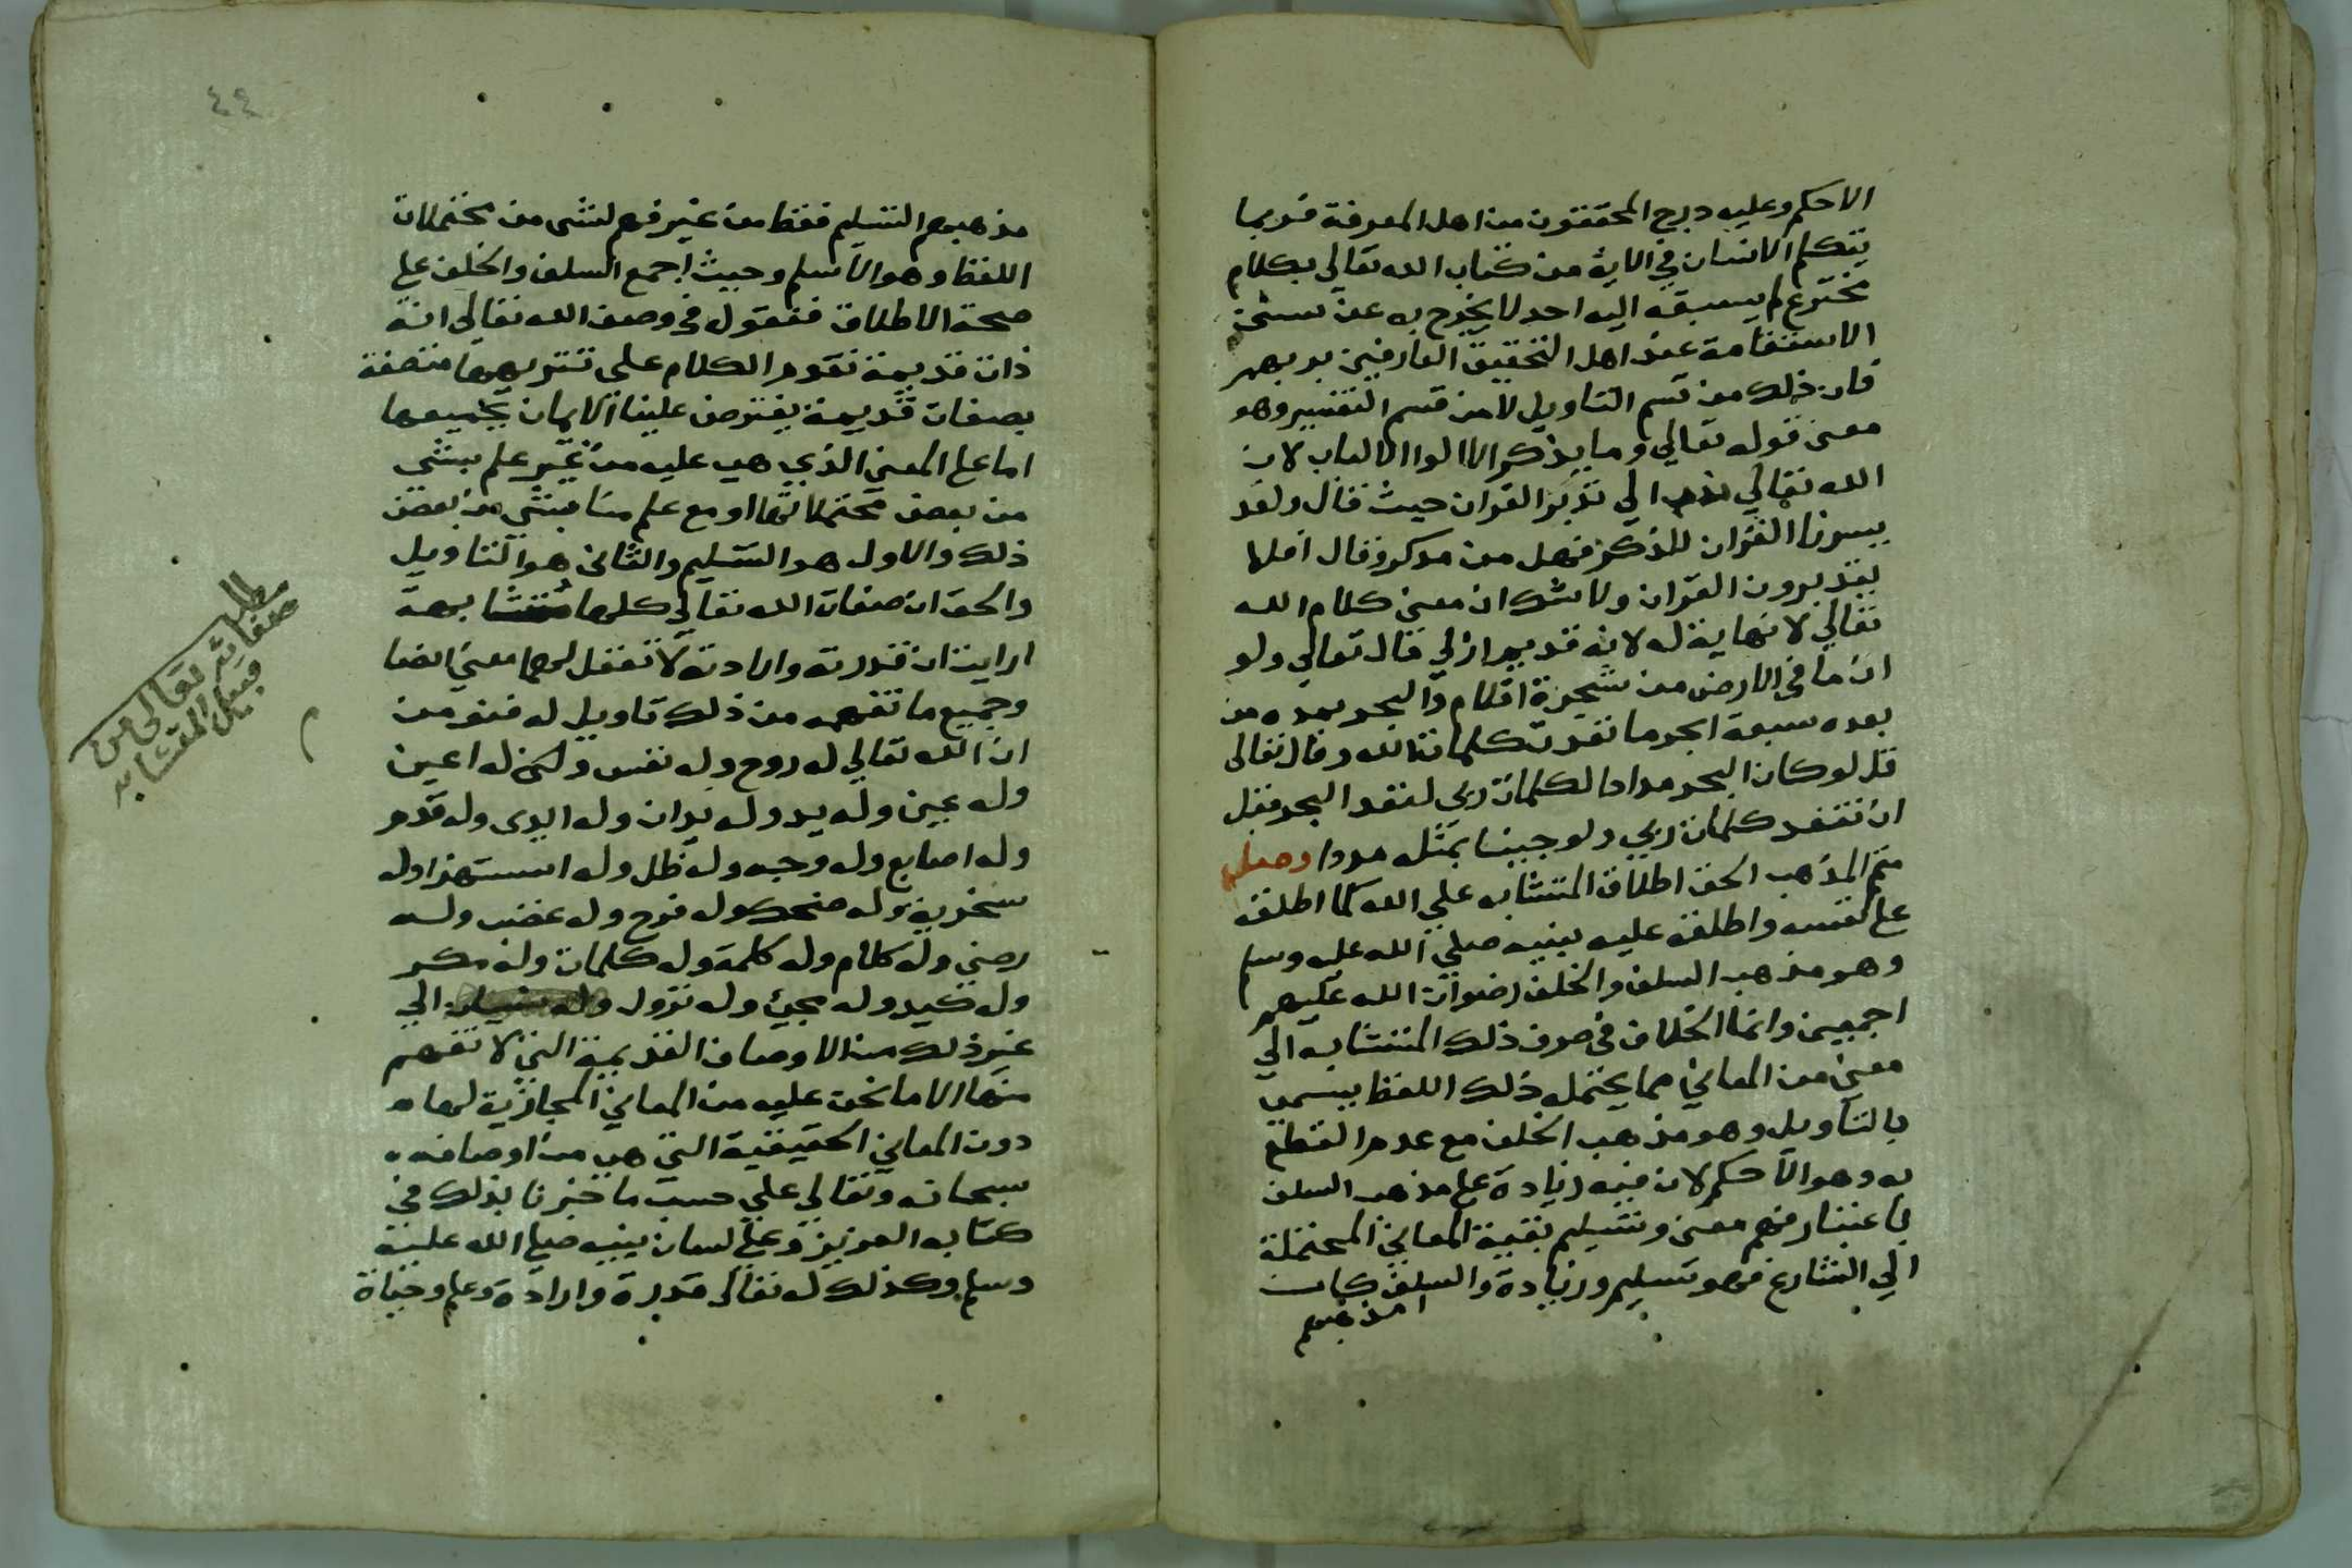 الاحكم وعليه درج المحققون من اهل المعرفة فربما
يتكلم الانسان في الاية من كتاب الله تعالى بكلام
مخترع لم يسبقه اليه احد لا يخرج به عن سنن
الاستقامة عند اهل التحقيق العارفين بربهم
فان ذلك من قسم التاويل لا من قسم التفسير وهو
معنى قوله تعالى وما يذكر الا الوا الالباب لان
الله تعالى ندب الي تدبر القران حيث قال ولقد
يسرنا القران للذكر فهل من مدكر وقال افلا
يتدبرون القران ولا شك ان معنى كلام الله
تعالى لا نهاية له لانه قديم ازلي قال تعالى ولو
ان ما في الارض من شجرة اقلام والبحر يمده من
بعده سبعة ابحر ما نفدت كلمات الله وقال تعالى
قل لو كان البحر مدادا لكلمات ربي لنفد البحر قبل
ان تنفد كلمات ربي ولو جينا بمثله مددا وصل
ثم المذهب الحق اطلاق المتشابه على الله كما اطلقه
على نفسه واطلقه عليه نبيه صلى الله عليه وسلم
وهو مذهب السلف والخلف رضوان الله عليهم
اجمعين وانما الخلاف في صرف ذلك المتشابه الي
معنى من المعاني مما يحتمل ذلك اللفظ يسمى
بالتاويل وهو مذهب الخلف مع عدم القطع
به وهو الاحكم لان فيه زيادة على مذهب السلف
باعتبار فهم معنى وتسليم بقية المعاني المحتملة
الي الشارع فهو تسليم وزيادة والسلف كان
مذهبهم
٤٤
مذهبهم التسليم فقط من غير فهم لشي من محتملات
اللفظ وهو الاسلم وحيث اجمع السلف والخلف على
صحة الاطلاق فنقول في وصف الله تعالى انه
ذات قديمة تقدم الكلام على تنزيهها متصفة
بصفات قديمة يفترض علينا الايمان بجميعها
اما على المعنى الذي هي عليه من غير علم بشي
من بعض محتملاتها او مع علم منا بشي من بعض
ذلك والاول هو التسليم والثاني هو التاويل
والحق ان صفات الله تعالى كلها متشابهة
ارايت ان قدرته وارادته لا تعقل لهما معنى ايضا
وجميع ما تفهمه من ذلك تاويل له فنومن
ان الله تعالى له روح وله نفس ولكن له اعين
وله عين وله يد وله يدان وله ايدي وله قدم
وله اصابع وله وجه وله ظل وله استهزا وله
سخرية وله ضحك وله فرح وله غضب وله
رضي وله كلام وله كلمة وله كلمات وله مكر
وله كيد وله مجئ وله نزول الي
غير ذلك من الاوصاف القديمة التي لا تفهم
منها الا ما نحن عليه من المعاني المجازية لها
دون المعاني الحقيقية التي هي من اوصافه
سبحانه وتعالى على حسب ما خبرنا بذلك في
كتابه العزيز وعلى لسان نبيه صلى الله عليه
وسلم وكذلك له تعالى قدرة وارادة وعلم وحياة
مطلب
صفاته تعالى من
قبيل المتشابه
م